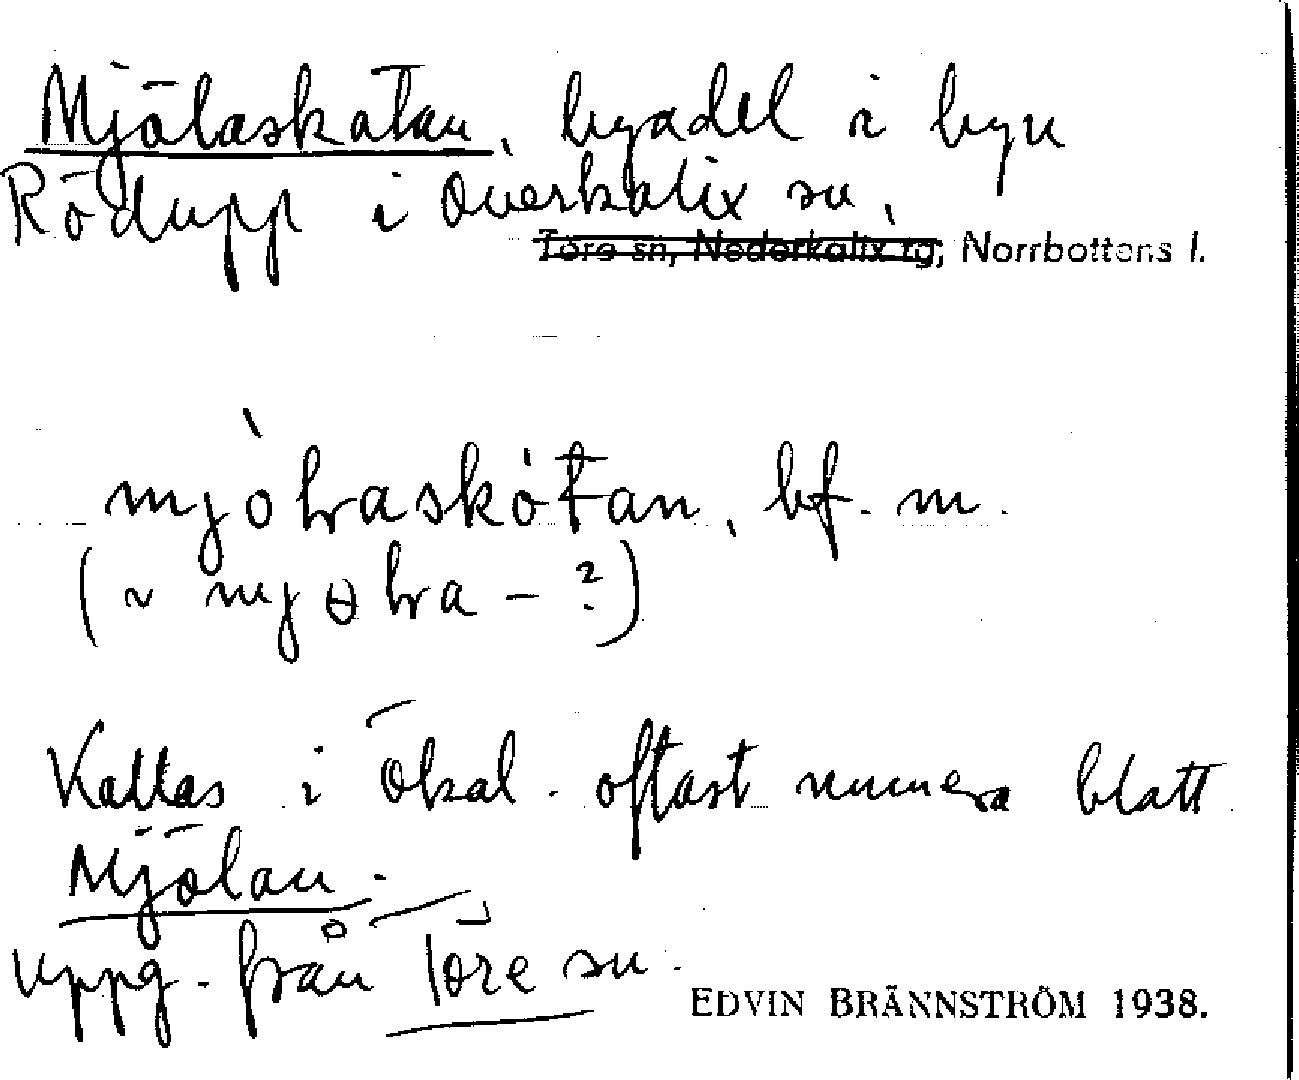 Mjölaskatan, byadel i byn
Rödupp i Överkalix sn,
Töre sn, Nederkalix tg, Norrbottens l.
bf. m.
Kallas i Ökal. oftast numera blott
Mjölan.
Uppg. från Töre sn.
EDVIN BRÄNNSTRÖM 1938.